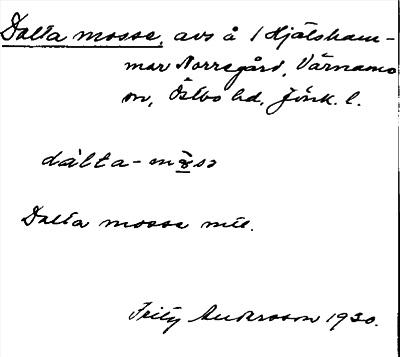 Dalta mosse, avs å 1 Hjälsham-
mar Norregård, Värnamo
sn, Östbo hd, Jönk. l.
dál̀ta-mose
Dalta mosse mtl.
Fritz Andersson 1930.